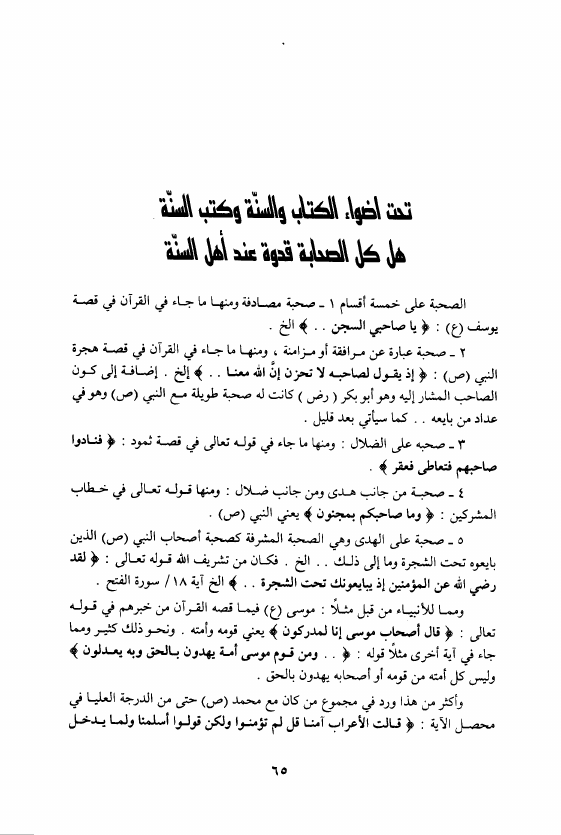 تحت اضواء الكتاب والسنّة وكتب السنّة
هل كل الصحابة قدوة عند أهل السنّة
الصحبة على خمسة أقسام ١ ـ صحبة مصادفة ومنها ما جاء في القرآن في قصة
يوسف (ع) : ﴿ يا صاحبي السجن . . ﴾ الخ .
٢ ـ صحبة عبارة عن مرافقة أو مزامنة ، ومنها ما جاء في القرآن في قصة هجرة
النبي (ص) : ﴿ إذ يقول لصاحبه لا تحزن إنَّ الله معنا . . ﴾ إلخ . إضافة إلى كون
الصاحب المشار إليه وهو أبو بكر ( رض ) كانت له صحبة طويلة مع النبي (ص) وهو في
عداد من بايعه . . كما سيأتي بعد قليل .
٣ ـ صحبه على الضلال : ومنها ما جاء في قوله تعالى في قصة ثمود : ﴿ فنادوا
صاحبهم فتعاطى فعقر ﴾ .
٤ ـ صحبة من جانب هدى ومن جانب ضلال : ومنها قوله تعالى في خطاب
المشركين : ﴿ وما صاحبكم بمجنون ﴾ يعني النبي (ص) .
٥ ـ صحبة على الهدى وهي الصحبة المشرفة كصحبة أصحاب النبي (ص) الذين
بايعوه تحت الشجرة وما إلى ذلك . . الخ . فكان من تشريف الله قوله تعالى : ﴿ لقد
رضي الله عن المؤمنين إذ يبايعونك تحت الشجرة . . ﴾ الخ آية ١٨/ سورة الفتح .
ومما للأنبياء من قبل مثلًا : موسى (ع) فيما قصه القرآن من خبرهم في قوله
تعالى : ﴿ قال أصحاب موسى إنا لمدركون ﴾ يعني قومه وأمته . ونحو ذلك كثير ومما
جاء في آية أخرى مثلًا قوله : ﴿ . . ومن قوم موسى أمة يهدون بالحق وبه يعدلون ﴾
وليس كل أمته من قومه أو أصحابه يهدون بالحق .
وأكثر من هذا ورد في مجموع من كان مع محمد (ص) حتى من الدرجة العليا في
محصل الآية : ﴿ قالت الأعراب آمنا قل لم تؤمنوا ولكن قولوا أسلمنا ولما يدخل
٦٥